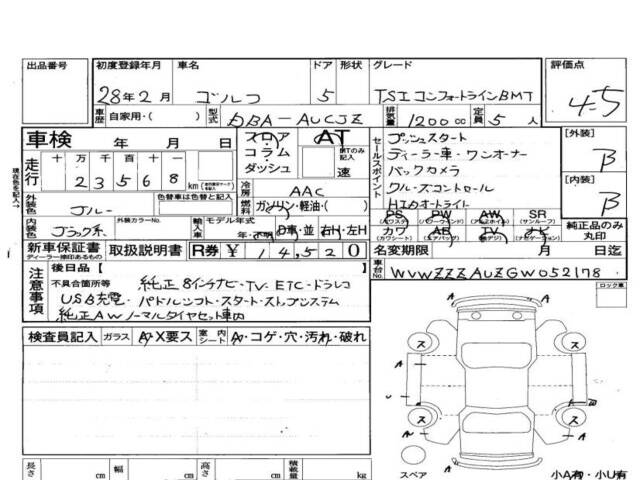 出品番号 初度登録年月 車名 ドア 形状 グレード 評価点
28年2月 ゴルフ 5 TSIコンフォートラインBMT 4.5
車歴 自家用・( ) 型式 DBA-AUCJZ 排気量 1200cc 定員 5人
車検 年 月 日 フロア・コラム・ダッシュ AT 速 セールスポイント
プッシュスタート
ディーラー車・ワンオーナー
バックカメラ
クルーズコントロール
HIDオートライト
[外装] B
[内装] B
走行 十 万 千 百 十 一
23568 km
冷房 AAC
外装色 ブルー 色替車は色替と記入 燃料 ガソリン・軽油・( )
内装色 ブラック系 外装カラーNo. 輸入車 モデル年式 年・不明 D車・並 右H・左H
PS PW AW SR
(パワステ) (パワーウインド) (アルミホイール) (サンルーフ)
カワ AB TV ナビ
(カワシート) (エアバッグ)
純正品のみ丸印
新車保証書 取扱説明書 R券 ¥14,520 名変期限 月 日迄
ディーラー捺印あるもの
車台No. WVWZZZAUZGW052178
現在色を記入→
注意事項 後日品[ ]
不具合箇所等 純正8インチナビ・TV・ETC・ドラレコ
USB充電・パドルシフト・スタートストップシステム
純正AWノーマルタイヤセット車内
ロック車
検査員記入 ガラス A・X要ス 室内シート A・コゲ・穴・汚れ・破れ
A ス ス A
A
A
A ス ス A
スペア
小A有・小U有
長さ cm 幅 cm 高さ cm 積載量 kg